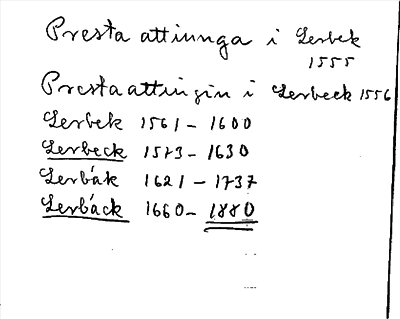 Presta attinnga i Lerbek
1555
Presta attingin i Lerbeck 1556
Lerbek 1561 - 1600
Lerbeck 1573 - 1630
Lerbäk 1621 - 1737
Lerbäck 1660 - 1880